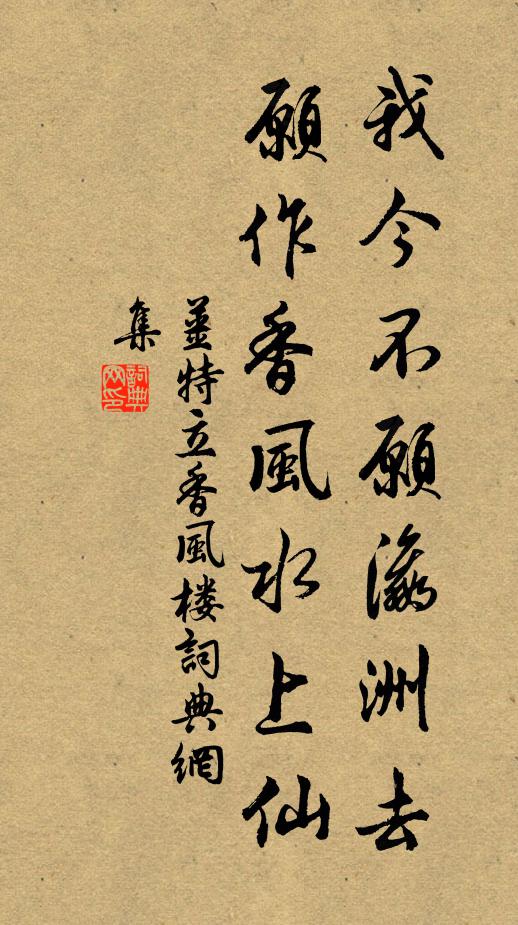 我今不願瀛洲去
願作香風水上仙
姜特立香風楼詞典網
集
詞典網印